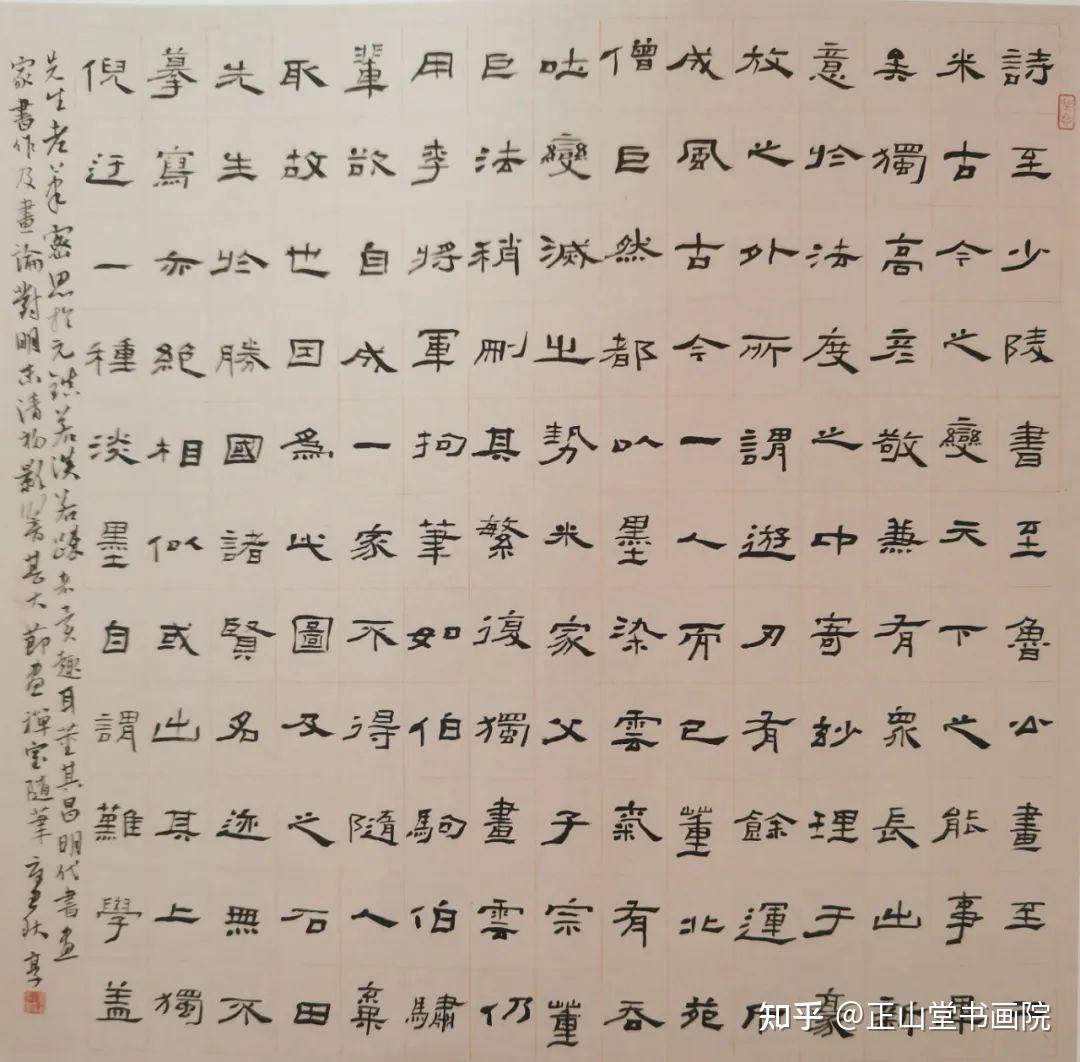 詩至少陵書至魯公畫至
米古今之變天下之能事畢
矣獨高彥敬兼有眾長出新
意於法度之中寄妙理于豪
放之外所謂遊刃有餘運斤
成風古今一人而已董北苑
僧巨然都以墨染雲氣有吞
吐變滅之勢米家父子宗董
巨法稍刪其繁復獨畫雲仍
用李將軍拘筆如伯駒伯驌
輩欲自成一家不得隨人棄
取故也因為此圖及之石田
先生於勝國諸賢名迹無不
摹寫亦絕相似或出其上獨
倪迂一種淡墨自謂難學盖
先生老筆密思於元鎮若淡若疎者異趣耳董其昌明代書畫
家書作及畫論對明末清初影響甚大節畫禪室隨筆
知乎 @正山堂书画院